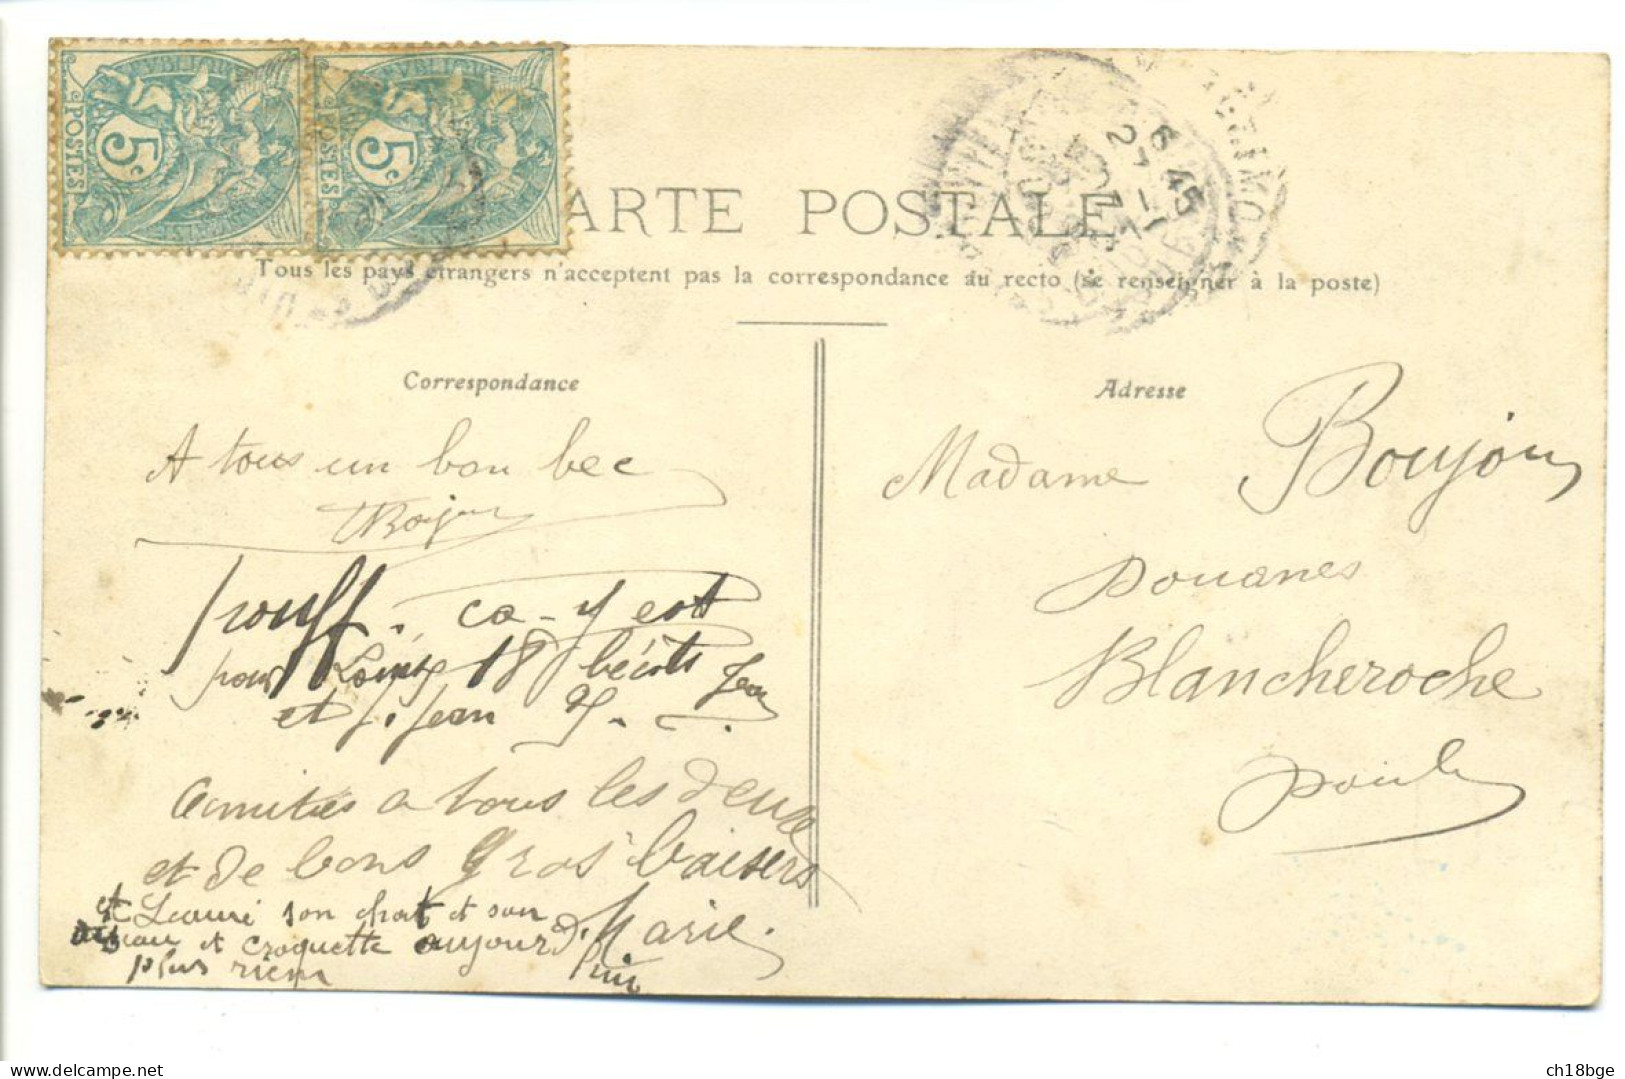 POSTES 5c
POSTES 5c
CARTE POSTALE
6 45
27 - 1
Tous les pays étrangers n'acceptent pas la correspondance au recto (se renseigner à la poste)
Correspondance
A tous un bon bec
pouff. ca-y est
pour 18 bécots Jean
et J. Jean
amitiés a tous les deux
et de bons gros baisers
Marie.
et son chat et son
et croquette aujourd'hui
plus rien
Adresse
Madame Boujon
Douanes
Blancheroche
Doubs
delcampe.net
ch18bge